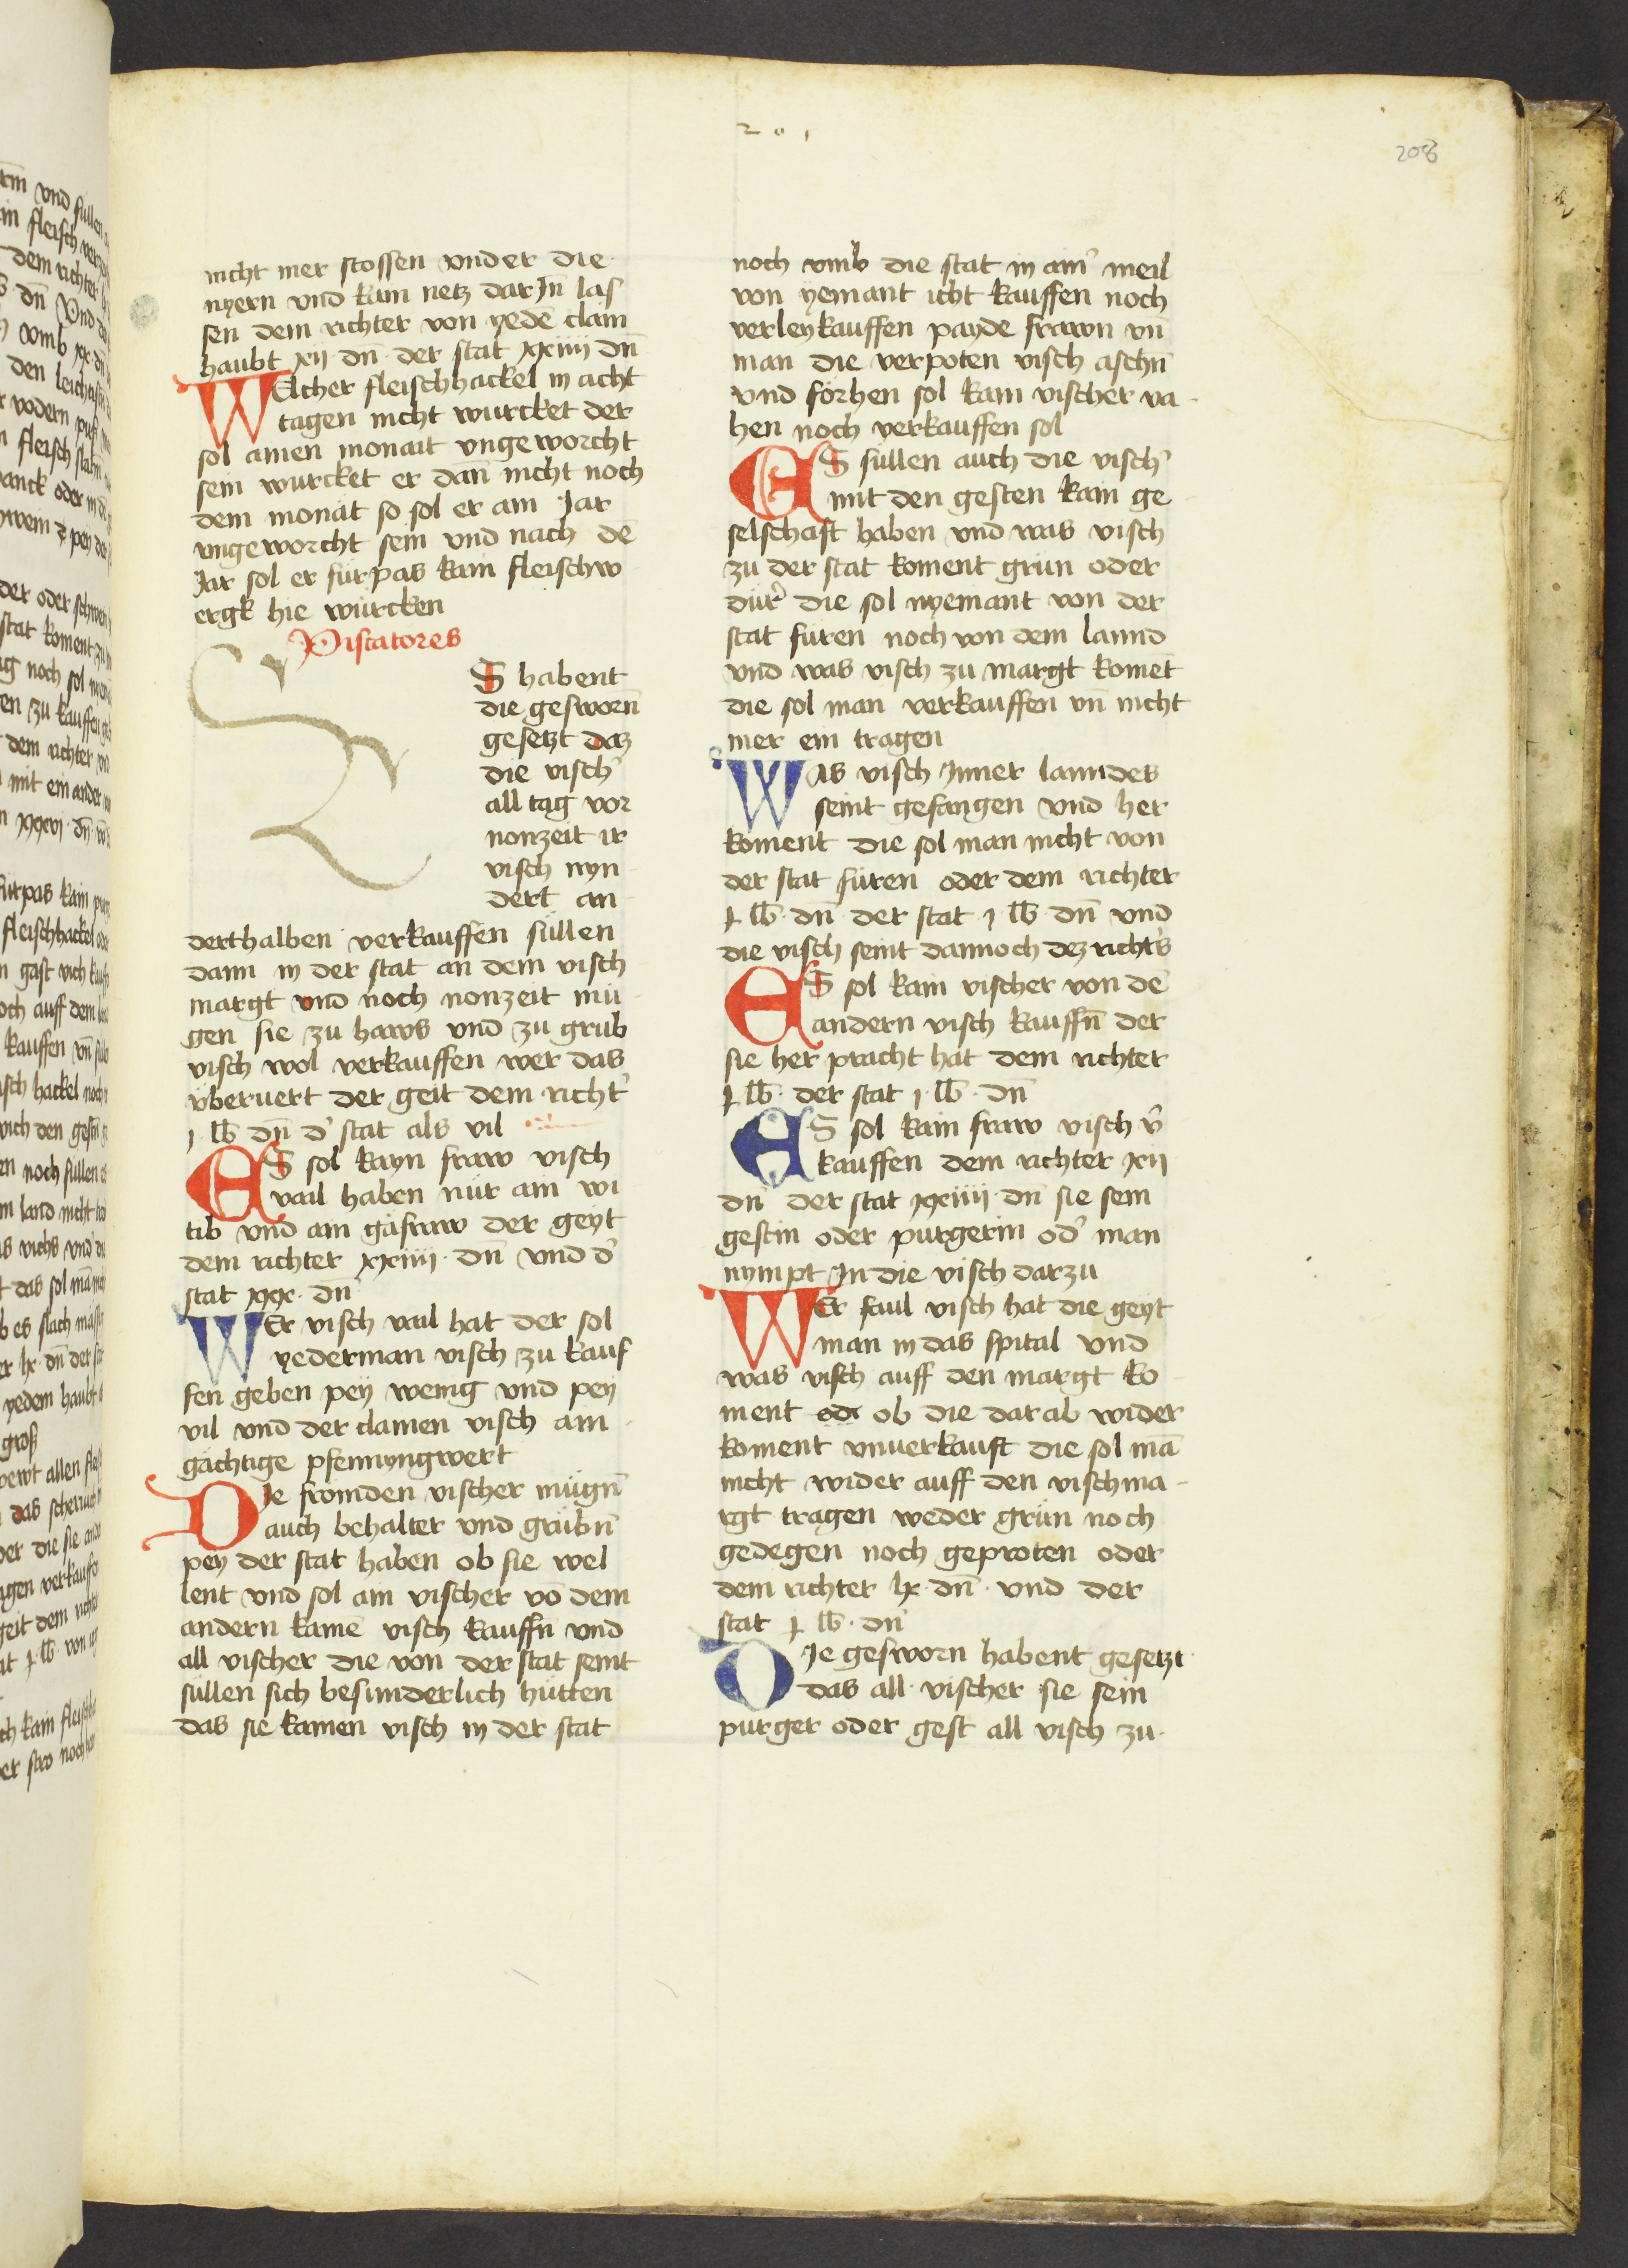 201
208
nicht mer stossen vnder die
nyern vnd kain netz darJn̄ las
sen dem richter von yedē clain
haubt xij dn̄ der stat xxiiij dn̄
WElcher fleischhackel in acht
tagen nicht wurcket der
sol ainen monait vngeworcht
sein wurcket er dan̄ nicht noch
dem monat so sol er ain Jar
vngeworcht sein vnd nach dē
Jar sol er fürpas kain fleischw
ergk hie würcken
Piscatores
S habent
die gesworn̄
gesetzt daz
die visch̾
all tag vor
nonzeit ir
visch nyn
dert an
derthalben verkauffen süllen
dann in der stat an dem visch
margt vnd noch nonzeit mü
gen sie zu haws vnd zu grub
visch wol verkauffen wer das
vberuert der geit dem richt̾
j lb dn̄ d̾ stat als vil
ES sol kayn fraw visch
vail haben nür ain wi
tib vnd ain gäfraw der geyt
dem richter xxiiij dn̄ vnd d̾
stat xxx dn̄
WEr visch vail hat der sol
yederman visch zu kauf
fen geben pey wenig vnd pey
vil vnd der clainen visch ain
gächtige pfennyngwert
DJe fromden vischer mügn̄
auch behalter vnd grübn̄
pey der stat haben ob sie wel
lent vnd sol ain vischer vō dem
andern kainē visch kauffn̄ vnd
all vischer die von der stat seint
süllen sich besunderlich hütten
das sie kainen visch in der stat
noch vmb die stat in ain̾ meil
von yemant icht kauffen noch
verleykauffen payde frawn vn̄
man die verpoten visch aschn̄
vnd förhen sol kain vischer va
hen noch verkauffen sol
ES süllen auch die visch̾
mit den gesten kain ge
selschaft haben vnd was visch
zu der stat koment grün oder
dürr̾ die sol nyemant von der
stat füren noch von dem lannd
vnd was visch zu margt komēt
die sol man verkauffen vn̄ nicht
mer ein tragen
WAs visch Jnner lanndes
seint gefangen vnd her
koment die sol man nicht von
der stat füren oder dem richter
j lb dn̄ der stat j lb dn̄ vnd
die visch seint dannoch dez richt̾s
ES sol kain vischer von dē
andern visch kauffn̄ der
sie her pracht hat dem richter
j lb der stat j lb dn̄
ES sol kain fraw visch v̾
kauffen dem richter xij
dn̄ der stat xxiiij dn̄ sie sein
gestin oder purgerin od̾ man
nympt Jn die visch darzu
WEr faul visch hat die geyt
man in das spital vnd
was visch auff den margt ko
ment odr ob die dar ab wider
koment vnuerkauft die sol mā
nicht wider auff den vischma
rgt tragen weder grün noch
gedegen noch geproten oder
dem richter lx dn̄ vnd der
stat j lb dn̄
DJe gesworn habent gesetzt
das all vischer sie sein
purger oder gest all visch zu